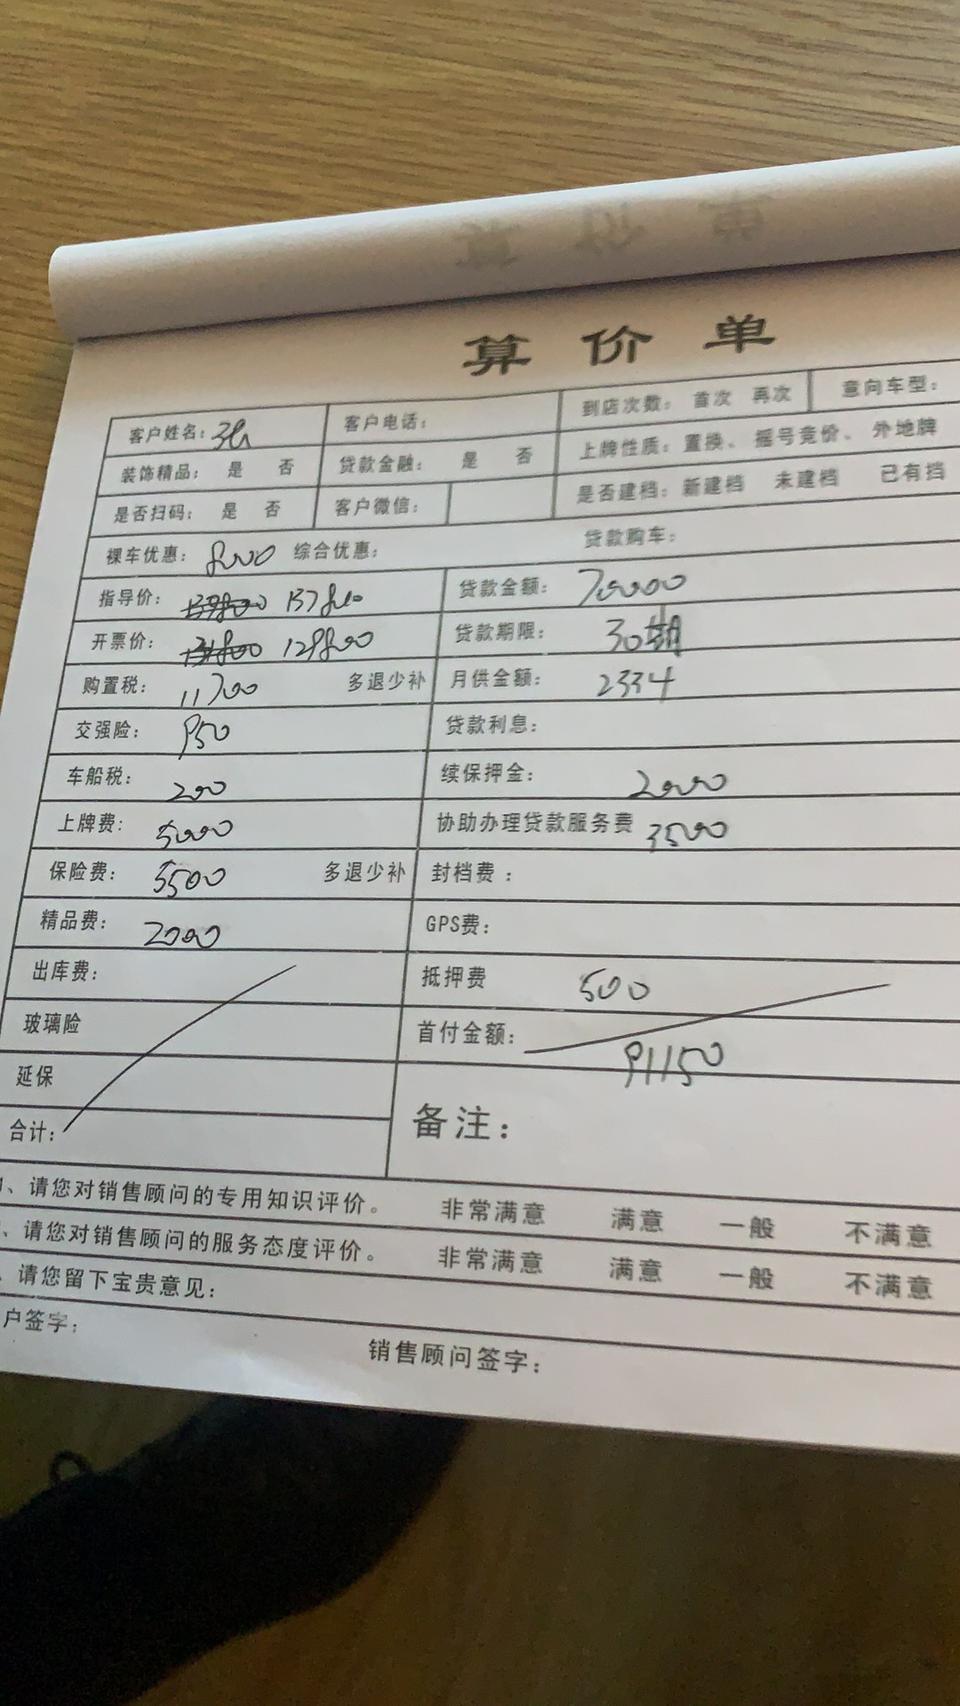 算价单
客户姓名：张 客户电话： 到店次数： 首次 再次 意向车型：
装饰精品： 是 否 贷款金融： 是 否 上牌性质：置换、 摇号竞价、 外地牌
是否扫码： 是 否 客户微信： 是否建档：新建档 未建档 已有挡
裸车优惠：8000 综合优惠： 贷款购车：
指导价： 137800 贷款金额： 70000
开票价： 129800 贷款期限： 30期
购置税： 11700 多退少补 月供金额： 2334
交强险： 950 贷款利息：
车船税： 200 续保押金： 2000
上牌费： 5000 协助办理贷款服务费 3500
保险费： 5500 多退少补 封档费：
精品费： 2000 GPS费：
出库费： 抵押费 500
玻璃险 首付金额： 91150
延保
合计： 备注：
、请您对销售顾问的专用知识评价。 非常满意 满意 一般 不满意
、请您对销售顾问的服务态度评价。 非常满意 满意 一般 不满意
、请您留下宝贵意见：
户签字： 销售顾问签字：